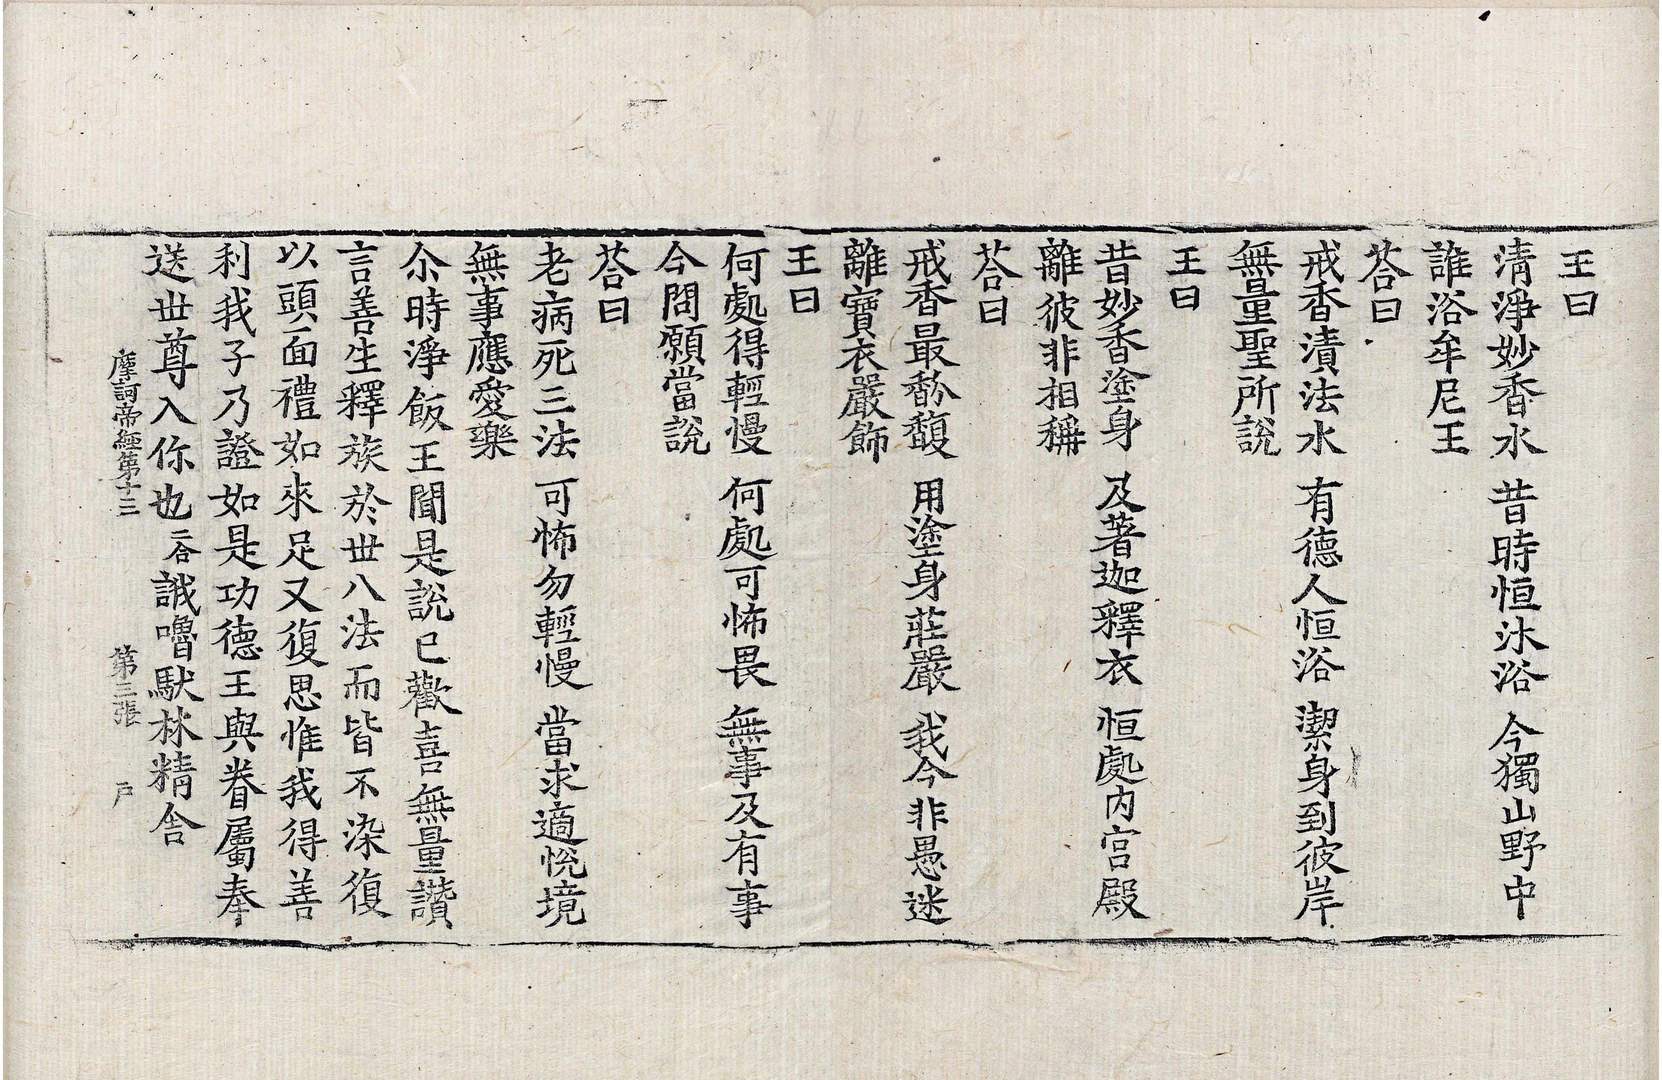 王曰
清淨妙香水 昔時恒沐浴 今獨山野中
誰浴牟尼王
荅曰
戒香漬法水 有德人恒浴 潔身到彼岸
無量聖所說
王曰
昔妙香塗身 及著迦釋衣 恒處内宫殿
離彼非相稱
荅曰
戒香最馚馥 用塗身莊嚴 我今非愚迷
離寶衣嚴飾
王曰
何處得輕慢 何處可怖畏 無事及有事
今問願當說
荅曰
老病死三法 可怖勿輕慢 當求適悅境
無事應愛樂
尒時淨飯王聞是說已歡喜無量讚
言善生釋族於世八法而皆不染復
以頭面禮如來足又復思惟我得善
利我子乃證如是功德王與眷屬奉
送世尊入你也二合誐嚕馱林精舍
摩訶帝經第十三 第三張 戶